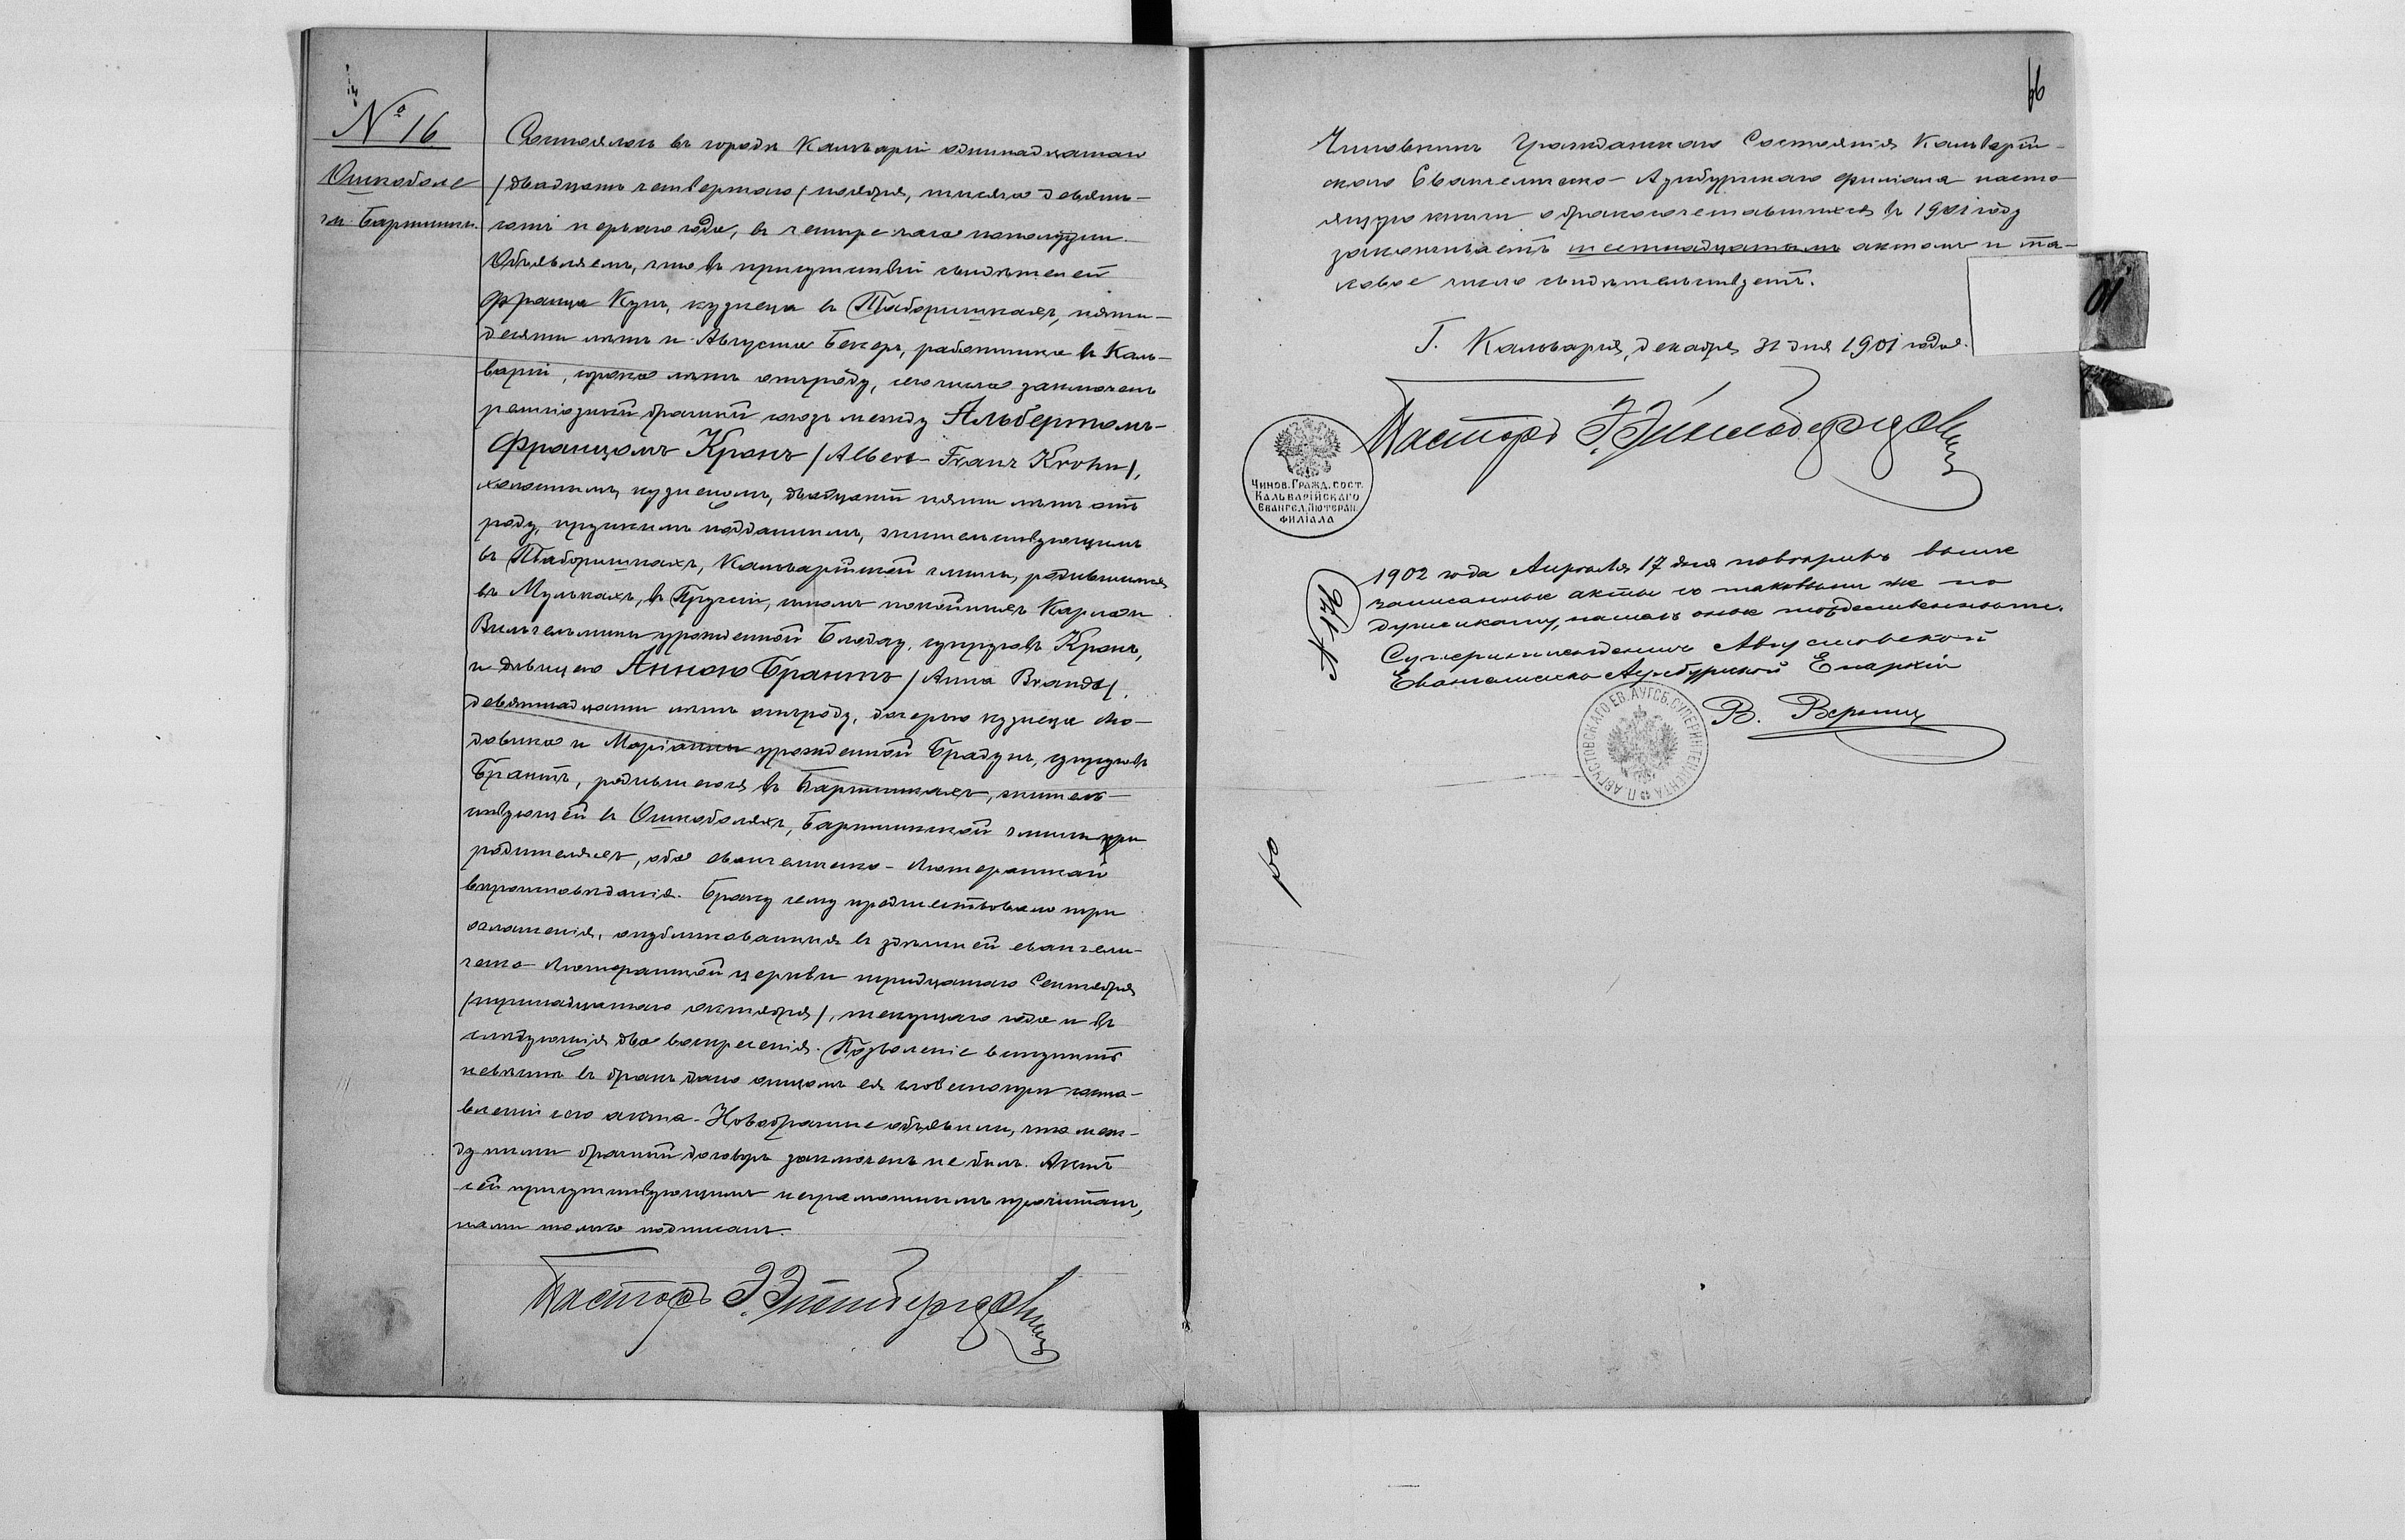 № 16
Ошкоболе
гм. Бартники.
Состоялось въ городѣ Кальваріи одинадцатаго
/двадцать четвертаго/ ноября, тысяча девять-
сотъ перваго года, въ четыре часа пополудни.
Объявляемъ, что въ присутствіи свидѣтелей
Франца Кунъ, кузнеца въ Таборишкахъ, пяти-
десяти лѣтъ и Августа Бекеръ, работника въ Каль-
варіи, сорока лѣтъ отъ роду, сего числа заключенъ
религіозный брачный союзъ между Альбертомъ-
Францомъ Кронъ /Albert Franz Krohn/,
холостымъ, кузнецомъ, двадцати пяти лѣтъ отъ
роду, прускимъ подданнымъ, жительствующимъ
въ Таборишкахъ, Кальварійской гмины, родившимся
въ Мулькахъ, въ Пруссіи, сыномъ покойныхъ Карла и
Вильгельмины урожденной Бледау, супруговъ Кронъ,
и дѣвицею Анною Брантъ /Anna Brandt/,
девятнадцати лѣтъ отъ роду, дочерью кузнеца Лю-
довика и Маріанны урожденной Брадунъ, супруговъ
Брантъ, родившеюся въ Бартникахъ, житель-
ствующей въ Ошкоболяхъ, Бартникской гмины при
родителяхъ, оба евангелическо-Лютеранскаго
вѣроисповѣданія. Браку сему предшествовало три
оглашенія, опубликованныя въ здѣшней евангели-
ческо-Лютеранской церкви тридцатаго Сентября
/тринадцатаго октября/, текущаго года и въ
слѣдующія два воскресенія. Позволеніе вступить
невѣстѣ въ бракъ дано отцомъ ея словесно при соста-
вленіи сего акта. Новобрачные объявили, что меж-
ду ними брачный договоръ заключенъ не былъ. Актъ
сей присутствующимъ неграмотнымъ прочитанъ,
нами только подписанъ.
Пасторъ
Чиновникъ Гражданскаго Состоянія Кальварій-
скаго Евангелическо-Аугсбургскаго филіала насто-
ящую книгу о бракосочетавшихся въ 1901 году
заканчиваетъ шестнадцатымъ актомъ и та-
ковое число свидѣтельствуетъ.
Г. Кальварія, декабря 31 дня 1901 года.
Пасторъ
Чинов. Гражд. сост.
Кальварійскаго
Евангел. Лютеран.
филіала
1902 года Апрѣля 17 дня повѣривъ выше
записанные акты съ таковыми же по
дубликату, нашелъ оные тождественными.
Суперинтендентъ Августовской
Евангелическо Аугсбургской Епархіи
П. АВГУСТОВСКАГО ЕВ. АУГСБ. СУПЕРИНТЕНДЕНТА
01